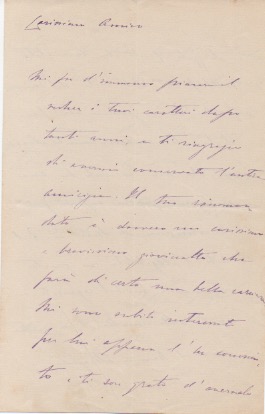 Carissimo Amico
Mi fu d'immenso piacere il
veder i tuoi caratteri dopo
tanti anni, e ti ringrazio
di avermi conservata l'antica
amicizia. Il tuo raccoman
dato è davvero un carissimo
e bravissimo giovinetto, che
farà di certo una bella carriera
Mi sono subito interessato
per lui appena l'ho conosciu
to, e ti son grato d'avermelo